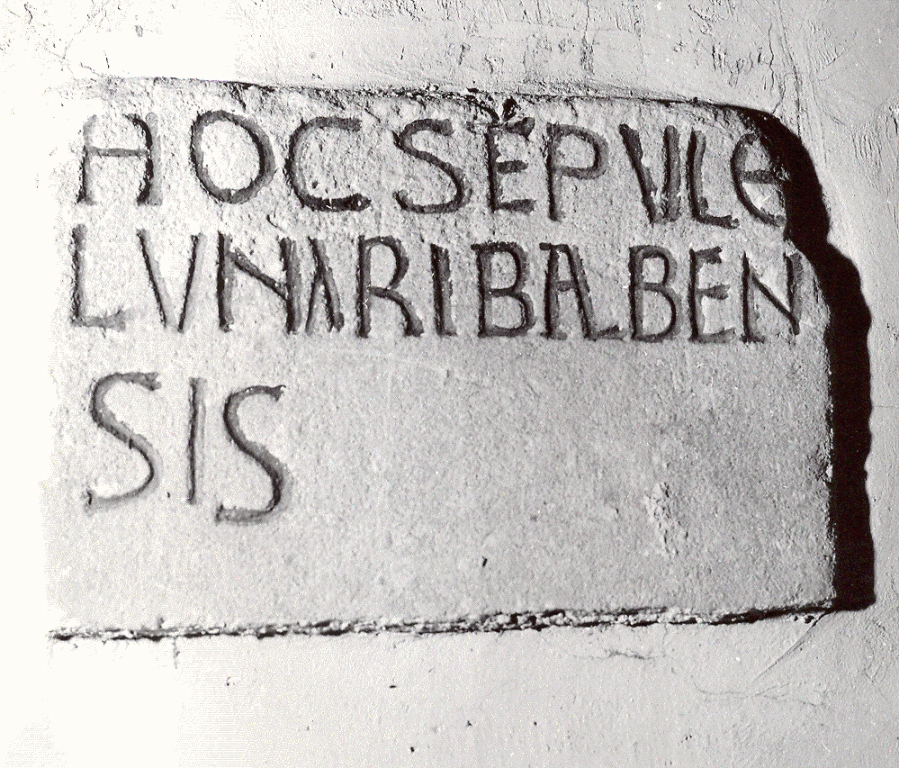 HOC SEPVLC
LVNARI BALBEN
SIS